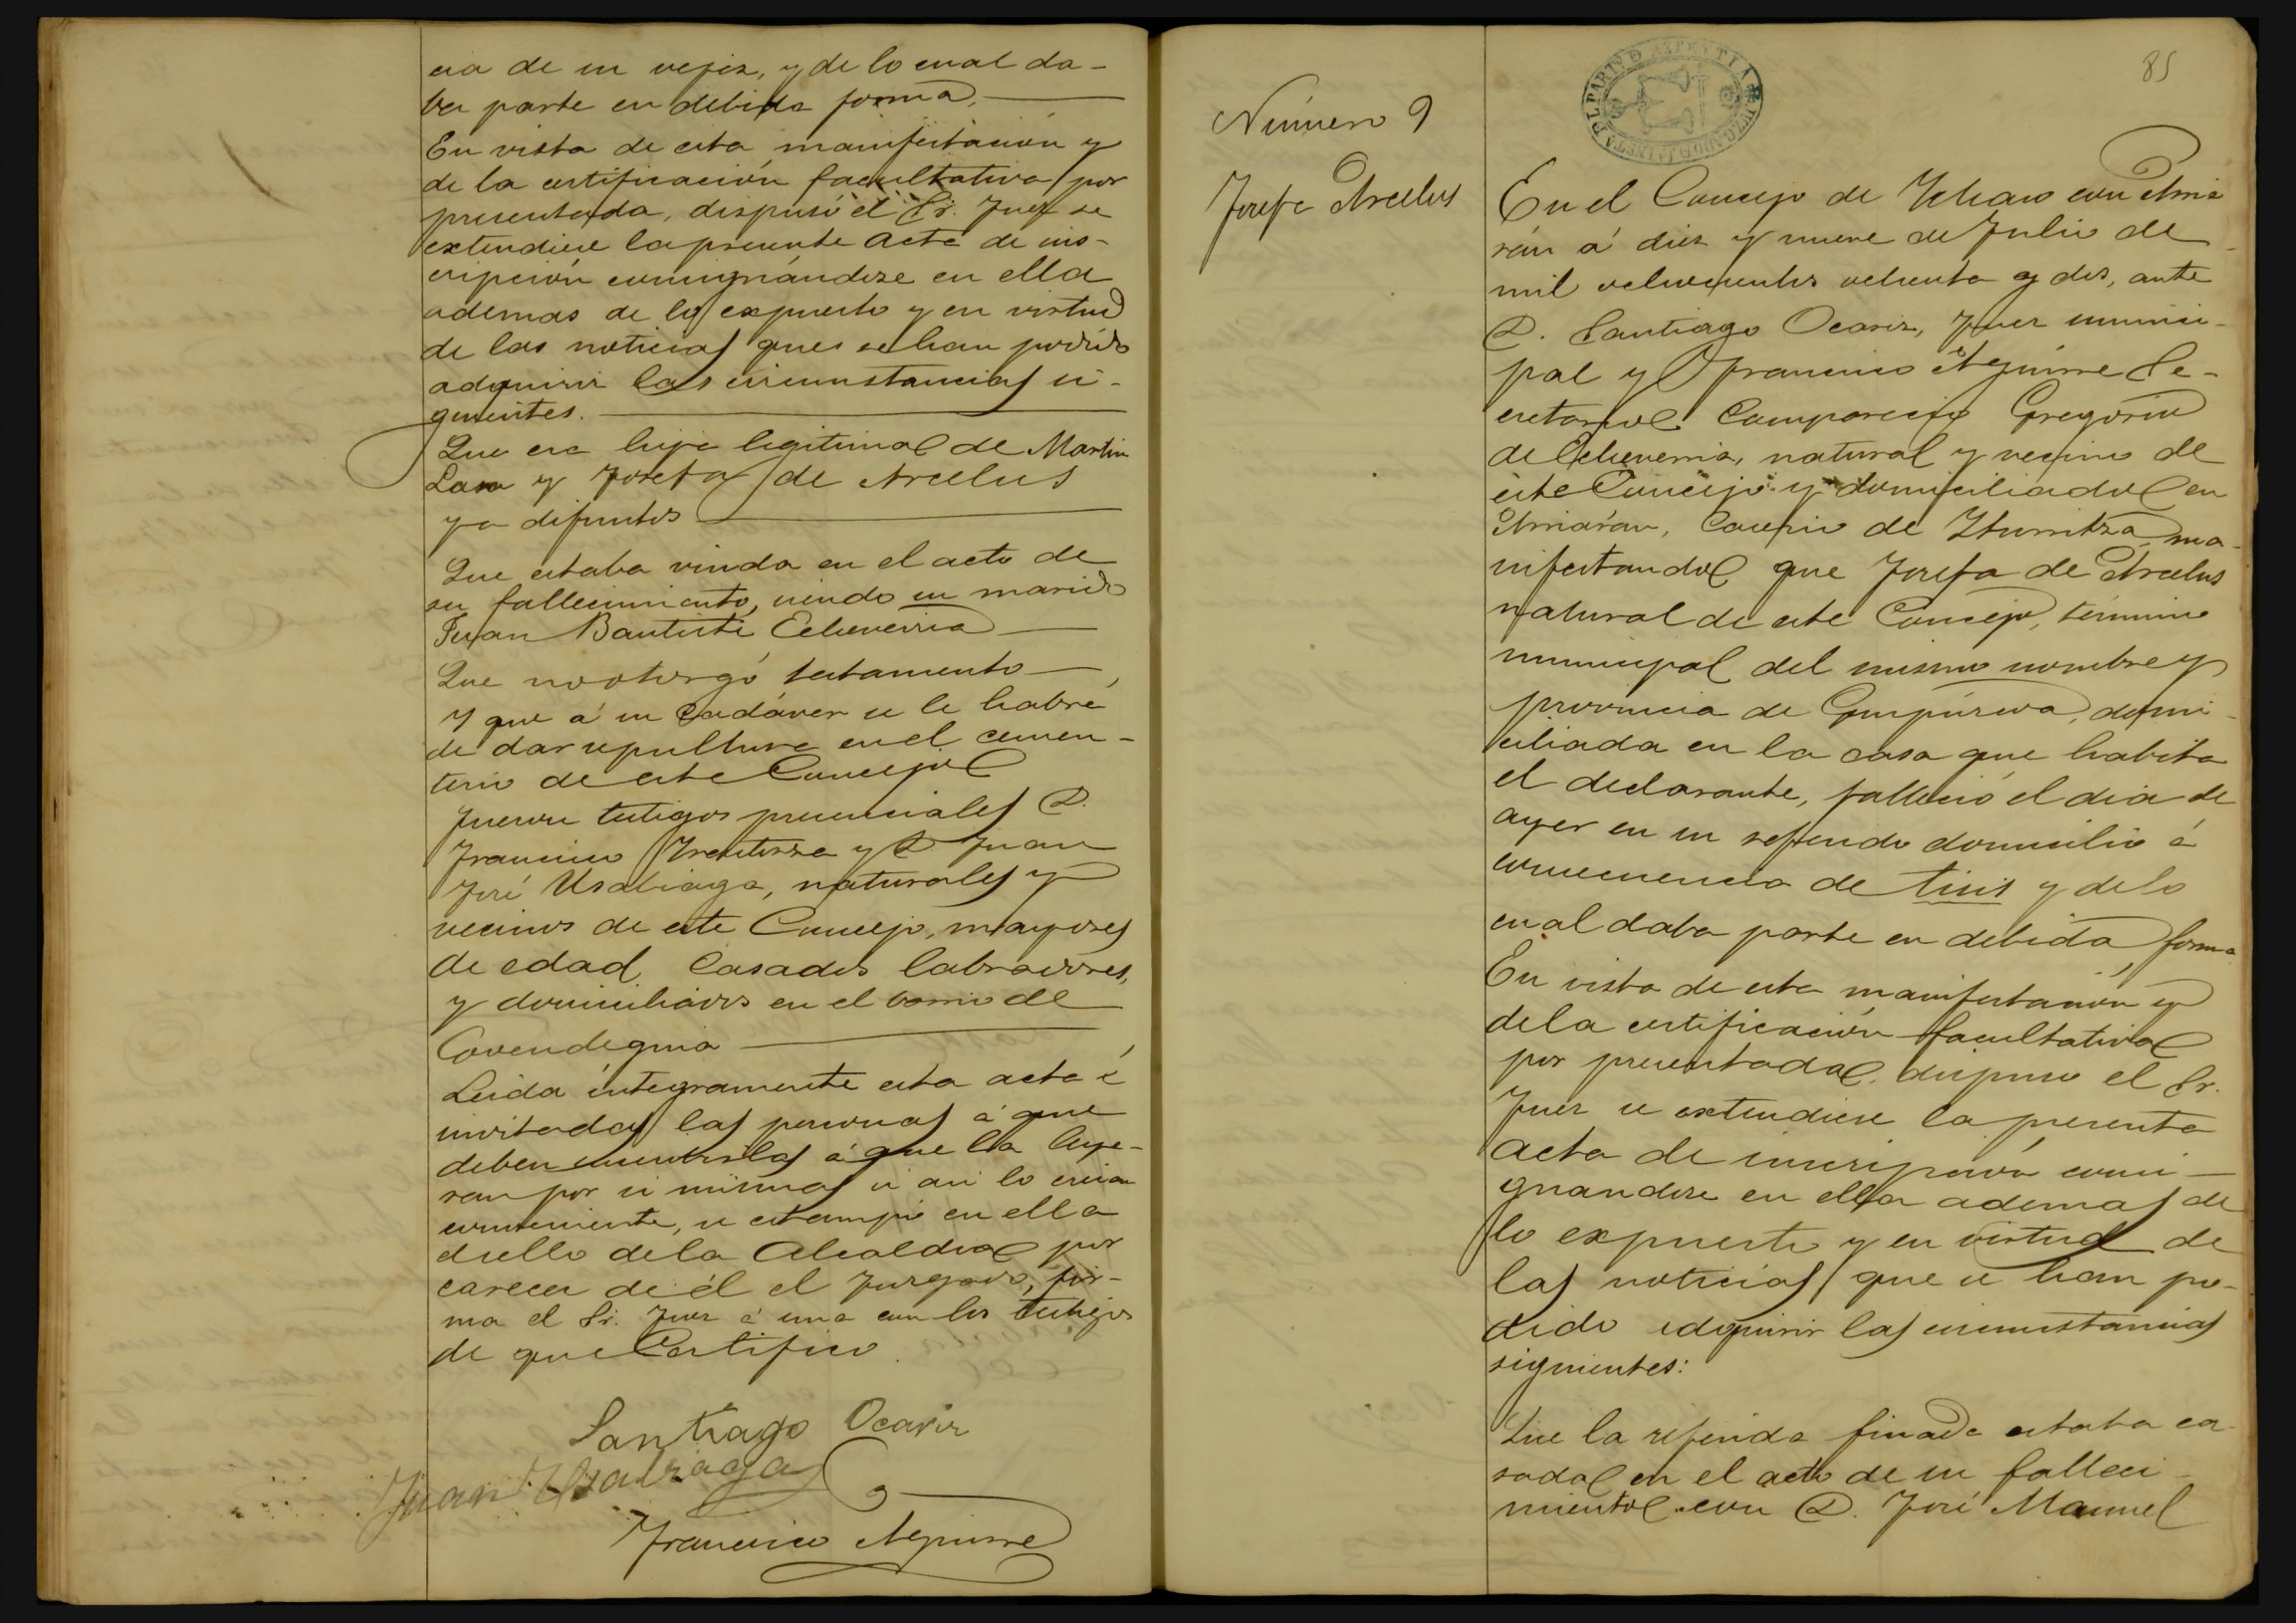 cia de su vejez, y de lo cual da-
ba parte en debida forma.
En vista de esta manifestación y
de la certificación facultativa por
presentada, dispuso el Sr. Juez se
extendiese la presente acta de ins-
cripción consignándose en ella
ademas de lo expuesto y en virtud
de las noticias que se han podido
adquirir las circunstancias si-
guientes.
Que era hija legitima de Martin
Lasa y Josefa de Arcelus
ya difuntos
Que estaba viuda en el acto de
su fallecimiento, siendo su marido
Juan Bautista Echeverria
Que no otorgó testamento
Y que á su cadáver se le habrá
de dar sepultura en el cemen-
terio de este Concejo
Fueron testigos presenciales D.
Francisco y D Juan
José Usabiaga, naturales y
vecinos de este Concejo, mayores
de edad, Casados labradores,
y domiciliados en el barrio de
Leida íntegramente esta acta é
invitadas las personas á que
deben suscribirla á que la leye-
ran por si mismas si asi lo creian
conveniente, se estampó en ella
el sello de la Alcaldia por
carecer de él el Juzgado, fir-
ma el Sr. Juez á una con los testigos
de que Certifico.
Santiago Ocariz
Juan Usabiaga
Francisco Aguirre
85
JUZGADO DE PAZ
Número 9
Josefa Arcelus
En el Concejo de Ichaso con Arria
rán á diez y nueve de Julio de
mil ochocientos ochenta y dos, ante
D. Santiago Ocariz, Juez munici-
pal y Francisco Aguirre Se-
cretario Compareció Gregorio
de Echeverria, natural y vecino de
este Concejo y domiciliado en
Arriarán, Caserio de Iturritza ma-
nifestando que Josefa de Arcelus
natural de este Concejo, término
municipal del mismo nombre y
provincia de Guipúzcoa, domi-
ciliada en la casa que habita
el declarante, falleció el dia de
ayer en su referido domicilio á
consecuencia de tisis y de lo
cual daba parte en debida forma
En vista de esta manifestación y
de la certificación facultativa
por presentada, dispuso el Sr.
Juez se extendiese la presente
acta de inscripción consi-
gnandose en ella ademas de
lo expuesto y en virtud de
las noticias que se han po-
dido adquirir las circunstancias
siguientes:
Que la referida finada estaba ca-
sada en el acto de su falleci-
miento con D. José Manuel